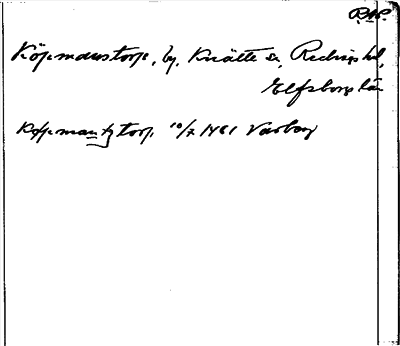 R.A.P.
Köpmanstorp, by, Knätte sn, Redvägs hd,
Elfsborgs län
Kopmantztorp 10/7 1481 Varberg